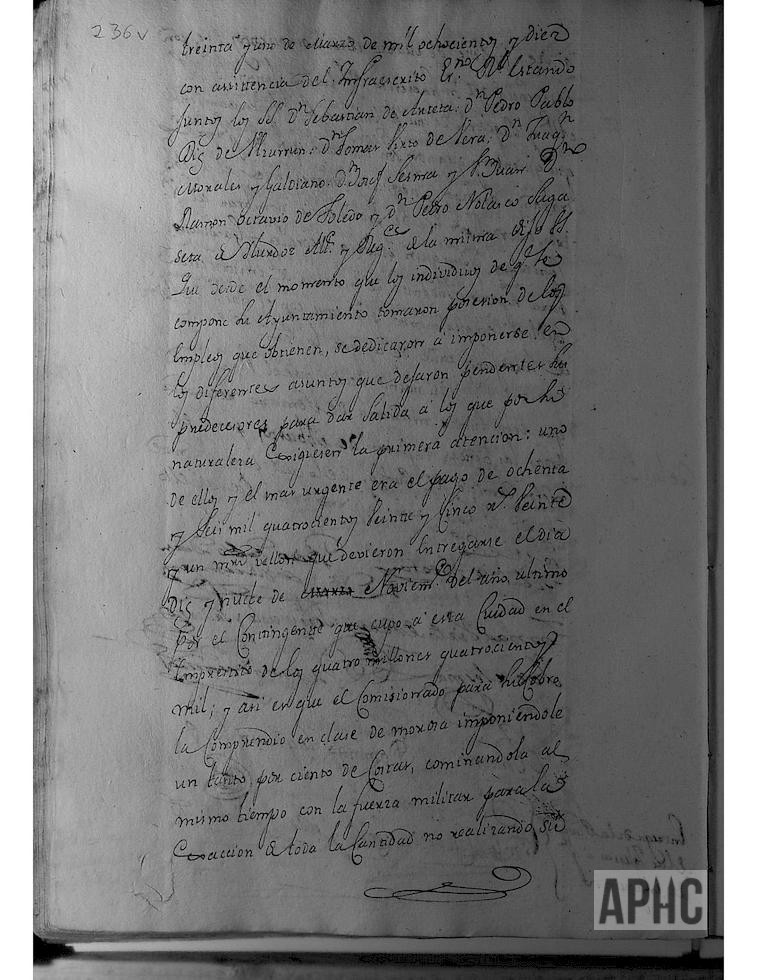 236v
treinta y uno de Marzo de mil ochocientos y diez
con assistencia del Infraescrito Er.no Rl Estando
juntos los SS. Dn Sebastian de Arteta: Dn Pedro Pablo
de Dn Tomas Sixto de Vera, Dn Juaqn
Morales y Galdiano: Dn Josef Sesma y Sn Juan Dn
Ramon Octavio de Toledo y Dn Pedro Nolasco Saga
seta de Alc. y Reg.es de la misma dijo SS.
Que desde el momento que los individuos de qe se
compone su Ayuntamiento tomaron posesion de los
Empleos que obtienen, se dedicaron a imponerse en
los diferentes asuntos que dejaron pendientes sus
predecesores para dar salida á los que por su
naturaleza Exigiesen la primera atencion: uno
de ellos y el mas urgente era el pago de ochenta
y seis mil quatrocientos veinte y cinco rs veinte
y un mrs vellon que devieron Entregarse el dia
diez y nueve de Noviemb.e del año ultimo
Por el Contingente que cupo á esta Ciudad en el
Emprestito de los quatro millones quatrocientos
mil; y asi es que el Comisionado para su Cobro
la Comprendio en clase de morosa imponiendole
un tanto por ciento de Costas, cominandola al
mismo tiempo con la fuerza militar para la
Exaccion de toda la Cantidad no realizando su
APHC